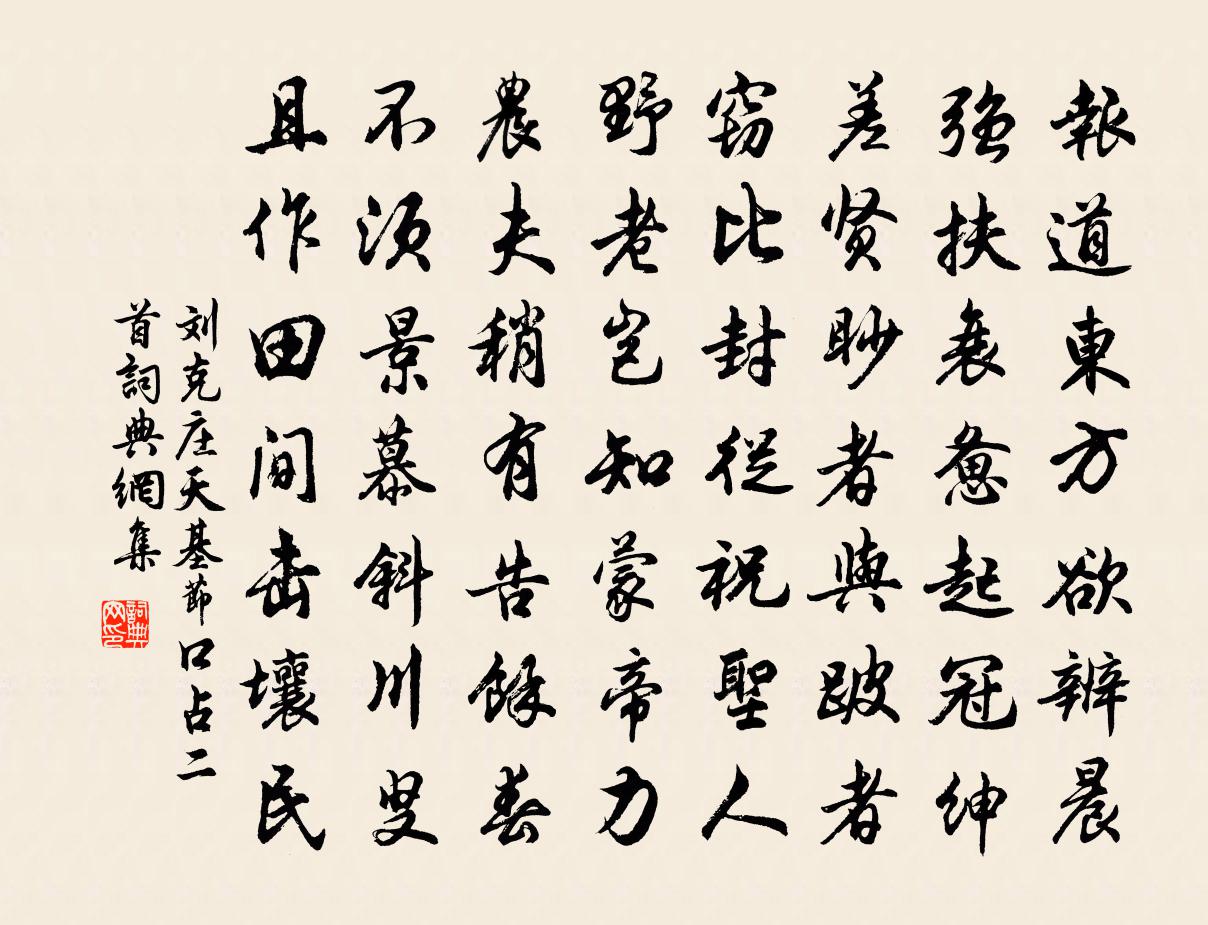 報道東方欲辨晨
強扶衰憊起冠紳
差贤眇者與跛者
窃比封從祝聖人
野老岂知蒙帝力
農夫稍有告餘春
不須景慕斜川叟
且作田間击壤民
刘克庄天基節口占二
首詞典網集
詞典网印